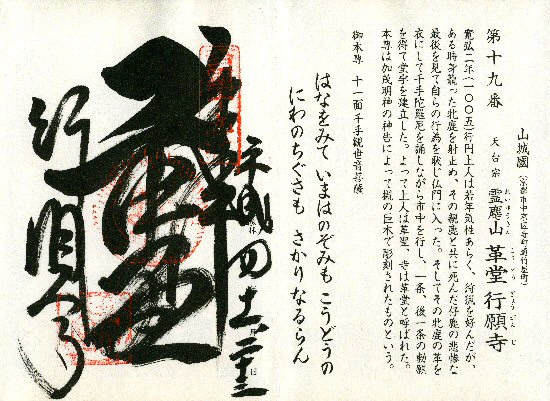 第十九番
山城國
(京都市中京区寺町通竹屋町)
天台宗 霊麀山 革堂 行願寺
れいゆうざん こうどう ぎょうがんじ
寛弘二年(一〇〇五)行円上人は若年気性あらく、狩猟を好んだが、
ある時身籠った牝鹿を射止め、その親鹿と共に死んだ仔鹿の悲惨な
最後を見て自らの行為を恥じ仏門に入った。そしてその牝鹿の革を
衣にして千手陀羅尼を誦しながら市中を行し、一条、後一条の勅願
を得て堂宇を建立した。よって上人は革聖、寺は革堂と呼ばれた。
本尊は加茂明神の神告によって槻の巨木で彫刻されたものという。
御本尊 十一面千手観世音菩薩
はなをみて いまはのぞみも こうどうの
にわのちぐさも さかり なるらん
平成四
十二
行願寺